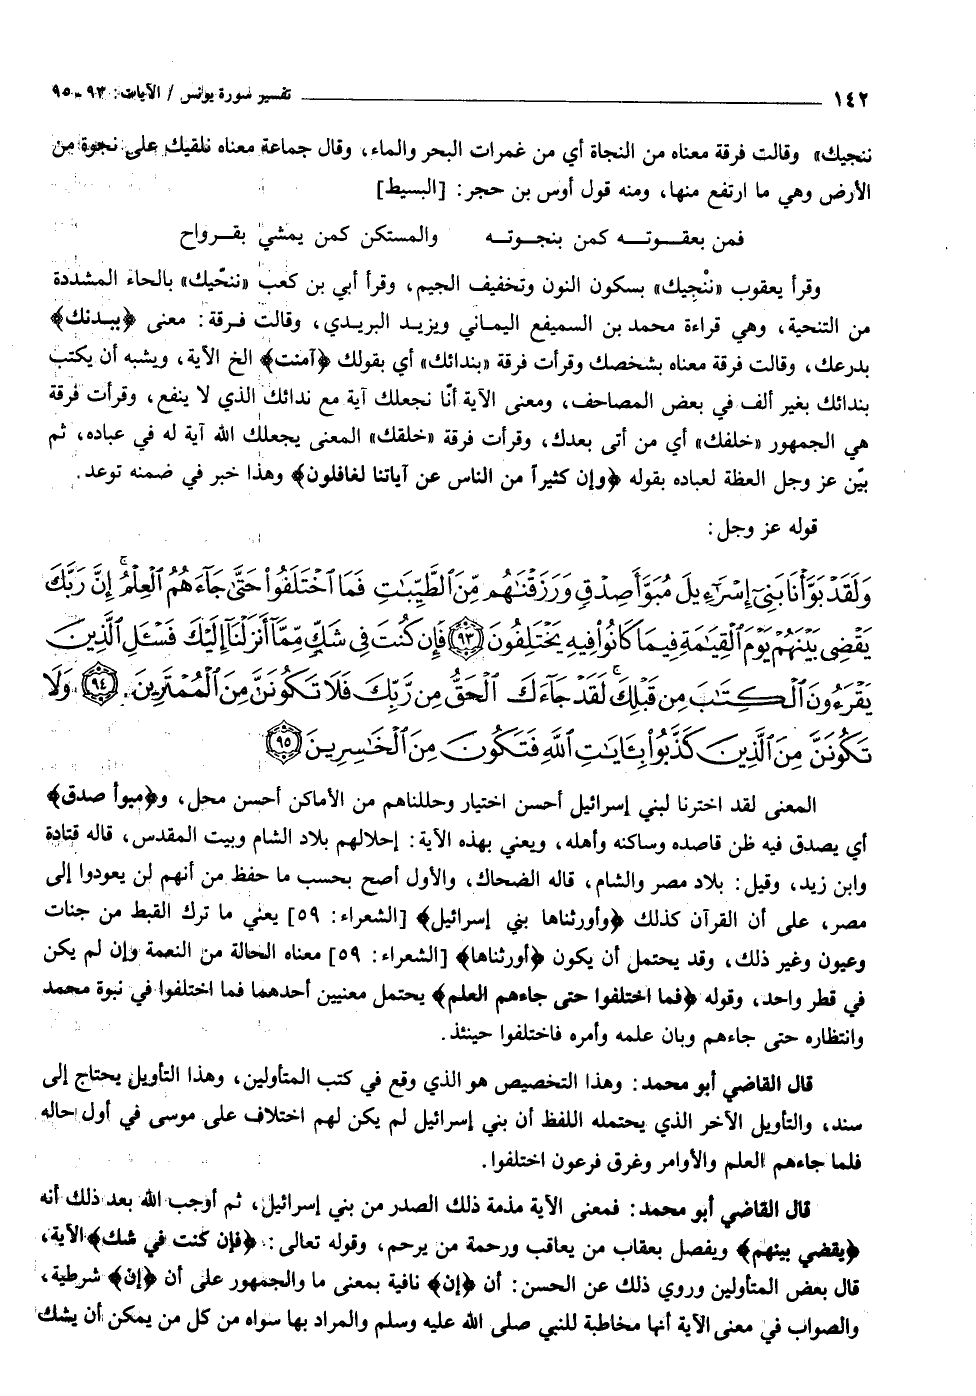 ١٤٢ ـــــــــــــــــــــــــــــــــــــــــــــــــ تفسير سورة يونس / الآيات: ٩٣ - ٩٥
ننجيك» وقالت فرقة معناه من النجاة أي من غمرات البحر والماء، وقال جماعة معناه نلقيك على نجوة من
الأرض وهي ما ارتفع منها، ومنه قول أوس بن حجر: [البسيط]
فمن بعقـوتـــه كمن بنجـوتـــه والمستكن كمن يمشي بقــرواح
وقرأ يعقوب «ننْجِيك» بسكون النون وتخفيف الجيم، وقرأ أبي بن كعب «ننحّيك» بالحاء المشددة
من التنحية، وهي قراءة محمد بن السميفع اليماني ويزيد البريدي، وقالت فرقة: معنى ﴿ببدنك﴾
بدرعك، وقالت فرقة معناه بشخصك وقرأت فرقة «بندائك» أي بقولك ﴿آمنت﴾ الخ الآية، ويشبه أن يكتب
بندائك بغير ألف في بعض المصاحف، ومعنى الآية أنّا نجعلك آية مع ندائك الذي لا ينفع، وقرأت فرقة
هي الجمهور «خلفك» أي من أتى بعدك، وقرأت فرقة «خلقك» المعنى يجعلك الله آية له في عباده، ثم
بيّن عز وجل العظة لعباده بقوله ﴿وإن كثيراً من الناس عن آياتنا لغافلون﴾ وهذا خبر في ضمنه توعد.
قوله عز وجل:
وَلَقَدْ بَوَّأْنَا بَنِىٓ إِسْرَٰٓءِيلَ مُبَوَّأَ صِدْقٍ وَرَزَقْنَٰهُم مِّنَ ٱلطَّيِّبَٰتِ فَمَا ٱخْتَلَفُوا۟ حَتَّىٰ جَآءَهُمُ ٱلْعِلْمُ ۚ إِنَّ رَبَّكَ
يَقْضِى بَيْنَهُمْ يَوْمَ ٱلْقِيَٰمَةِ فِيمَا كَانُوا۟ فِيهِ يَخْتَلِفُونَ ﴿٩٣﴾ فَإِن كُنتَ فِى شَكٍّ مِّمَّآ أَنزَلْنَآ إِلَيْكَ فَسْـَٔلِ ٱلَّذِينَ
يَقْرَءُونَ ٱلْكِتَٰبَ مِن قَبْلِكَ ۚ لَقَدْ جَآءَكَ ٱلْحَقُّ مِن رَّبِّكَ فَلَا تَكُونَنَّ مِنَ ٱلْمُمْتَرِينَ ﴿٩٤﴾ وَلَا
تَكُونَنَّ مِنَ ٱلَّذِينَ كَذَّبُوا۟ بِـَٔايَٰتِ ٱللَّهِ فَتَكُونَ مِنَ ٱلْخَٰسِرِينَ ﴿٩٥﴾
المعنى لقد اخترنا لبني إسرائيل أحسن اختيار وحللناهم من الأماكن أحسن محل، و﴿مبوأ صدق﴾
أي يصدق فيه ظن قاصده وساكنه وأهله، ويعني بهذه الآية: إحلالهم بلاد الشام وبيت المقدس، قاله قتادة
وابن زيد، وقيل: بلاد مصر والشام، قاله الضحاك، والأول أصح بحسب ما حفظ من أنهم لن يعودوا إلى
مصر، على أن القرآن كذلك ﴿وأورثناها بني إسرائيل﴾ [الشعراء: ٥٩] يعني ما ترك القبط من جنات
وعيون وغير ذلك، وقد يحتمل أن يكون ﴿أورثناها﴾ [الشعراء: ٥٩] معناه الحالة من النعمة وإن لم يكن
في قطر واحد، وقوله ﴿فما اختلفوا حتى جاءهم العلم﴾ يحتمل معنيين أحدهما فما اختلفوا في نبوة محمد
وانتظاره حتى جاءهم وبان علمه وأمره فاختلفوا حينئذ.
قال القاضي أبو محمد: وهذا التخصيص هو الذي وقع في كتب المتأولين، وهذا التأويل يحتاج إلى
سند، والتأويل الآخر الذي يحتمله اللفظ أن بني إسرائيل لم يكن لهم اختلاف على موسى في أول حاله
فلما جاءهم العلم والأوامر وغرق فرعون اختلفوا.
قال القاضي أبو محمد: فمعنى الآية مذمة ذلك الصدر من بني إسرائيل، ثم أوجب الله بعد ذلك أنه
﴿يقضي بينهم﴾ ويفصل بعقاب من يعاقب ورحمة من يرحم، وقوله تعالى: ﴿فإن كنت في شك﴾ الآية،
قال بعض المتأولين وروي ذلك عن الحسن: أن ﴿إن﴾ نافية بمعنى ما والجمهور على أن ﴿إن﴾ شرطية،
والصواب في معنى الآية أنها مخاطبة للنبي صلى الله عليه وسلم والمراد بها سواه من كل من يمكن أن يشك